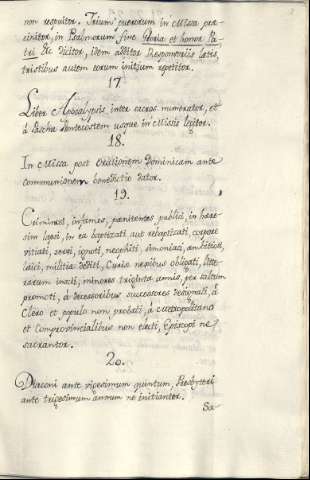 non repetitor. Trium puerorum in Missa pre-
cinitor, in Psalmorum fine Gloria et honor Pa-
tri &c dicitor, idem additor Responsoriis lætis,
tristibus autem eorum initium repetitor.
17.
Liber Apocalypsis inter sacros numerator, et
à Pascha Pentecostem usque in Missis legitor.
18.
In Missa post Orationem Dominicam ante
communionem benedictio dator.
19.
Criminosi, infames, pænitentes publici, in hære-
sim lapsi, in ea baptizati aut rebaptizati, corpore
vitiati, servi, ignoti, neophiti simoniaci, ambitiosi,
laici, militiæ dediti, Curiæ nexibus obligati, litte-
rarum inscii, minores triginta annis, per saltum
promoti, à decessoribus successores designati, à
Clero et populo non probati, à Metropolitano
et Comprovincialibus non electi, Episcopi ne
sacrantor.
20.
Diaconi ante vigesimum quintum, Presbyteri
ante trigesimum annum ne initiantor.